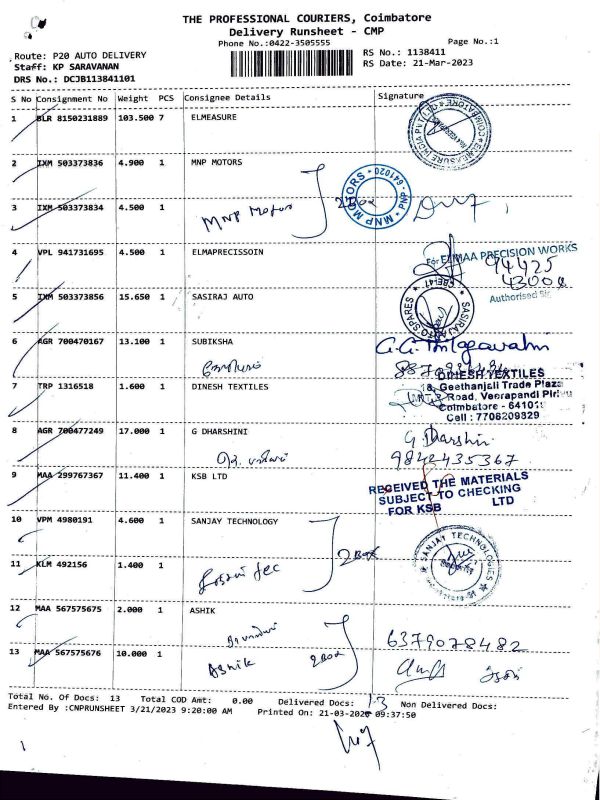 THE PROFESSIONAL COURIERS, Coimbatore
Delivery Runsheet - CMP
Phone No.:0422-3505555
Page No.:1
Route: P20 AUTO DELIVERY
RS No.: 1138411
Staff: KP SARAVANAN
RS Date: 21-Mar-2023
DRS No.: DCJB113841101
S No Consignment No Weight PCS Consignee Details Signature
1 BLR 8150231889 103.500 7 ELMEASURE
2 IXM 503373836 4.900 1 MNP MOTORS
MNP MOTORS 641020
3 IXM 503373834 4.500 1
MNP Motors 2 Box
4 VPL 941731695 4.500 1 ELMAPRECISSOIN
For ELMAA PRECISION WORKS
94425
43004
Authorised Sig
5 IXM 503373856 15.650 1 SASIRAJ AUTO
SASIRAJ AUTO SPARES
6 AGR 700470167 13.100 1 SUBIKSHA
7 TRP 1316518 1.600 1 DINESH TEXTILES
DINESH TEXTILES
18, Geethanjali Trade Plaza
Road, Veerapandi Pirivu
Coimbatore - 641019
Cell : 7708209829
8 AGR 700477249 17.000 1 G DHARSHINI
G Dharshini
9842435367
9 MAA 299767367 11.400 1 KSB LTD
RECEIVED THE MATERIALS
SUBJECT TO CHECKING
FOR KSB LTD
10 VPM 4980191 4.600 1 SANJAY TECHNOLOGY
SANJAY TECHNOLOGIES
11 KLM 492156 1.400 1
2 Box
12 MAA 567575675 2.000 1 ASHIK
6379078482
13 MAA 567575676 10.000 1
Ashik 2 Box
Total No. Of Docs: 13 Total COD Amt: 0.00 Delivered Docs: 13 Non Delivered Docs:
Entered By :CNPRUNSHEET 3/21/2023 9:20:00 AM Printed On: 21-03-2023 09:37:50